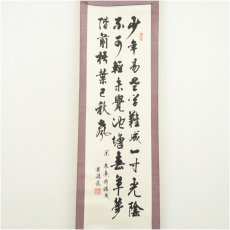 少年易老學難成一寸光陰
不可輕未覺池塘春草夢
階前梧葉已秋風
宋